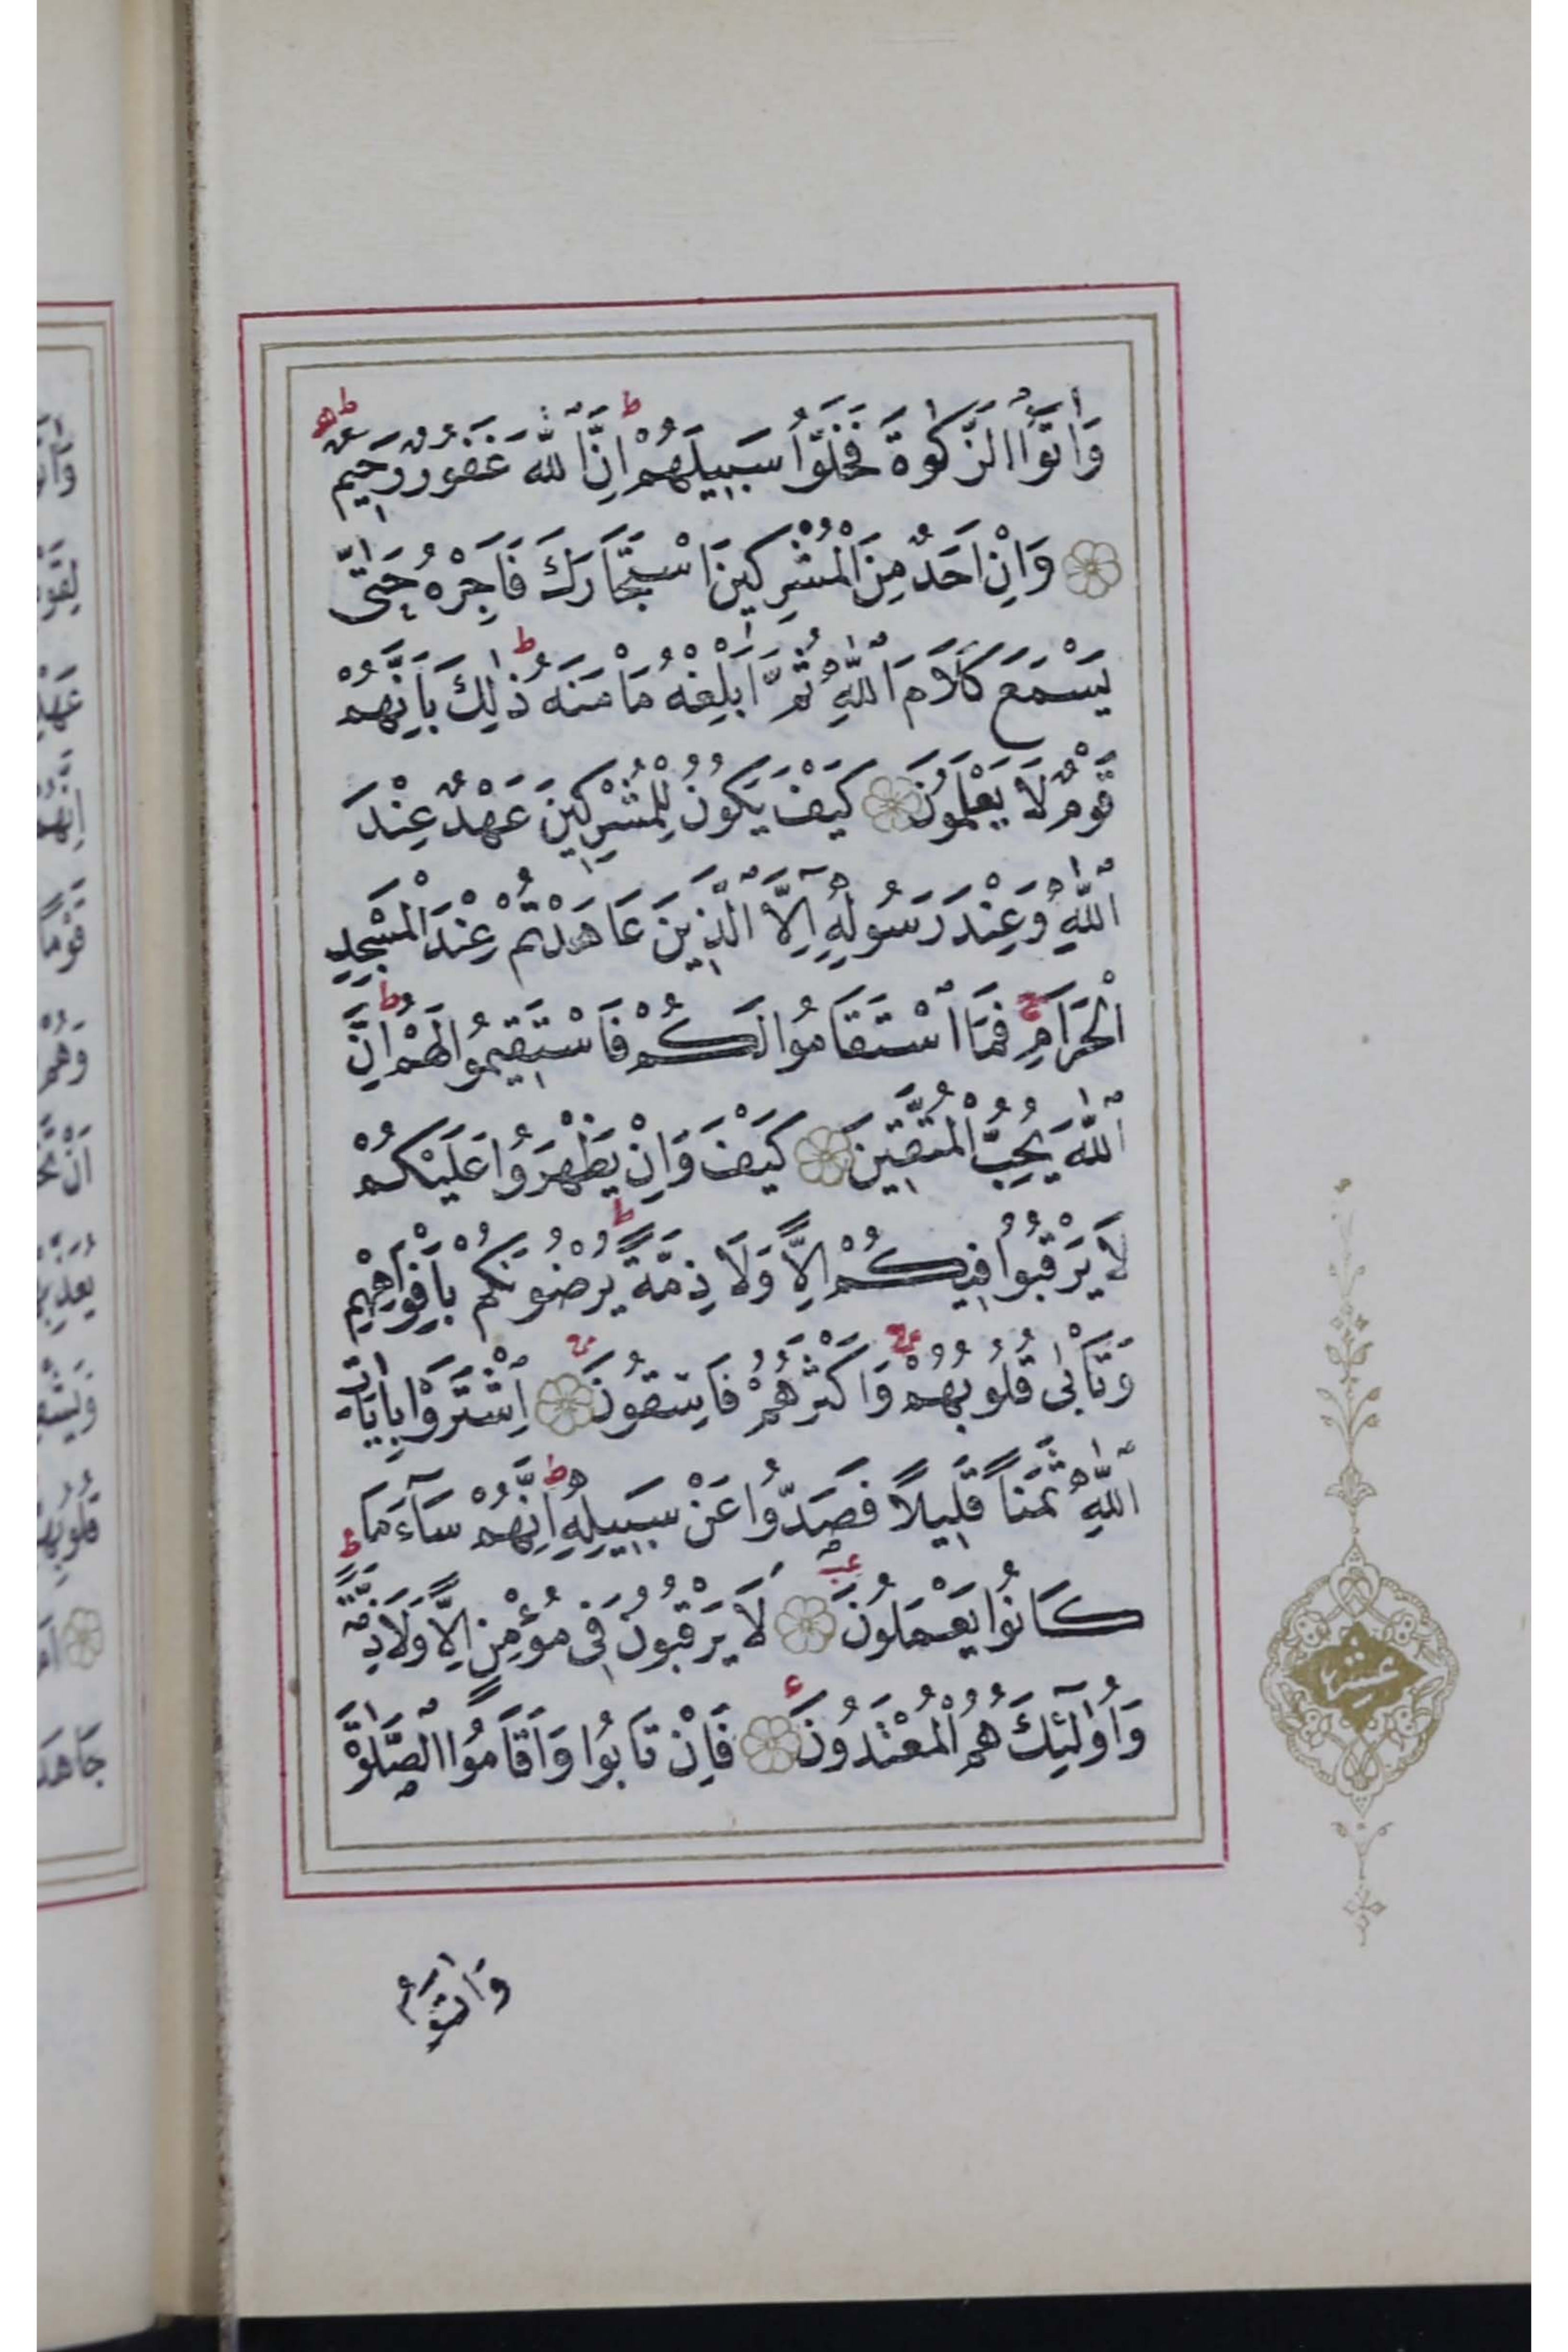 وَاٰتَوُا الزَّكٰوةَ فَخَلُّوا سَبِيلَهُمْ اِنَّ اللّٰهَ غَفُورٌ رَحِيمٌ
وَاِنْ اَحَدٌ مِنَ الْمُشْرِكِينَ اسْتَجَارَكَ فَاَجِرْهُ حَتّٰى
يَسْمَعَ كَلَامَ اللّٰهِ ثُمَّ اَبْلِغْهُ مَأْمَنَهُ ذٰلِكَ بِاَنَّهُمْ
قَوْمٌ لَا يَعْلَمُونَ كَيْفَ يَكُونُ لِلْمُشْرِكِينَ عَهْدٌ عِنْدَ
اللّٰهِ وَعِنْدَ رَسُولِهِ اِلَّا الَّذِينَ عَاهَدْتُمْ عِنْدَ الْمَسْجِدِ
الْحَرَامِ فَمَا اسْتَقَامُوا لَكُمْ فَاسْتَقِيمُوا لَهُمْ اِنَّ
اللّٰهَ يُحِبُّ الْمُتَّقِينَ كَيْفَ وَاِنْ يَظْهَرُوا عَلَيْكُمْ
لَا يَرْقُبُوا فِيكُمْ اِلًّا وَلَا ذِمَّةً يُرْضُونَكُمْ بِاَفْوَاهِهِمْ
وَتَأْبٰى قُلُوبُهُمْ وَاَكْثَرُهُمْ فَاسِقُونَ اِشْتَرَوْا بِاٰيَاتِ
اللّٰهِ ثَمَنًا قَلِيلًا فَصَدُّوا عَنْ سَبِيلِهِ اِنَّهُمْ سَآءَ مَا
كَانُوا يَعْمَلُونَ لَا يَرْقُبُونَ فِى مُؤْمِنٍ اِلًّا وَلَا ذِمَّةً
وَاُولٰٓئِكَ هُمُ الْمُعْتَدُونَ فَاِنْ تَابُوا وَاَقَامُوا الصَّلٰوةَ
وَاٰتَوُا